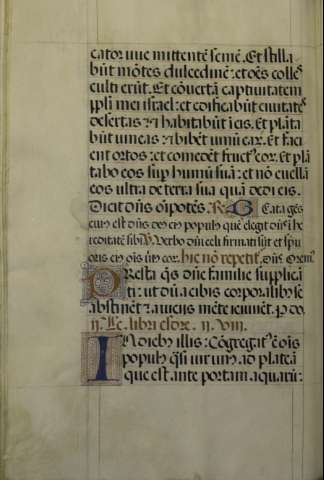 cator uue mittentē semē. Et stilla
būt mōtes dulcedinē: et oēs colles
culti erūt. Et cōvertā captivitatem
ppli mei israel: et edificabūt civitates
desertas ⁊ ihabitabūt i eis. Et plāta
būt vineas: ⁊ bibēt vinū eaꝝ. Et faci
ent ortos: et comedēt fruct⁹ eoꝝ. Et plā
tabo eos sup humū suā: et nō evellā
eos ultra de terra sua quā dedi eis.
Dicit dñs oīpotēs. R. G. Beata gēs
cui⁹ est dñs de⁹ ei⁹ populus quē elegit dn̄s ī he
reditatē sibi. V. Verbo dnī celi firmati sūt et spū
oris ei⁹ oīs virt⁹ eoꝝ. hic nō repetit̄. Dn̄s. Orem⁹.
Presta q̄s dn̄e familie supplicā
ti: ut dū a cibis corporalib⁹ se
abstinet: a viciis mēte ieiunet. p do.
Lc. libri esdre. II. VIII.
In dieb⁹ illis: Cōgregat⁹ ē oīs
popul⁹ q̄si vir un⁹: ad plateā
que est ante portam aquarū: